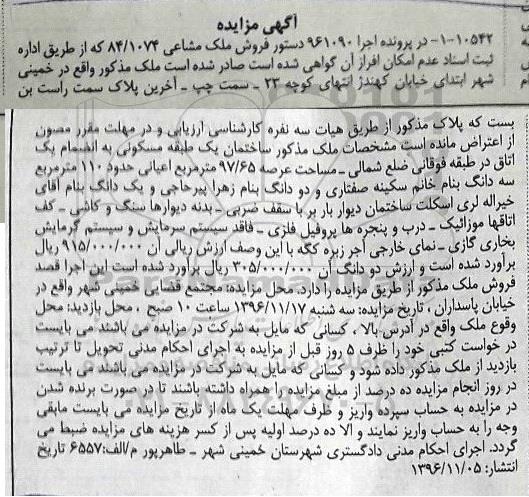 آگهی مزایده
۱-۱۰۵۴۲- در پرونده اجرا ۹۶۱۰۹۰ دستور فروش ملک مشاعی ۸۴/۱۰۷۴ که از طریق اداره
ثبت اسناد عدم امکان افراز آن گواهی شده است صادر شده است ملک مذکور واقع در خمینی
شهر ابتدای خیابان کهندژ انتهای کوچه ۲۳ ـ سمت چپ ـ آخرین پلاک سمت راست بن
بست که پلاک مذکور از طریق هیات سه نفره کارشناسی ارزیابی و در مهلت مقرر مصون
از اعتراض مانده است مشخصات ملک مذکور ساختمان یک طبقه مسکونی به انضمام یک
اتاق در طبقه فوقانی ضلع شمالی ـ مساحت عرصه ۹۷/۶۵ مترمربع اعیانی حدود ۱۱۰ مترمربع
سه دانگ بنام خانم سکینه صفتاری و دو دانگ بنام زهرا پیرحاجی و یک دانگ بنام آقای
خیراله لری اسکلت ساختمان دیوار بار بر با سقف ضربی ـ بدنه دیوارها سنگ و کاشی ـ کف
اتاقها موزائیک ـ درب و پنجره ها پروفیل فلزی ـ فاقد سیستم سرمایش و سیستم گرمایش
بخاری گازی ـ نمای خارجی آجر زبره کگه با این وصف ارزش ریالی آن ۹۱۵/۰۰۰/۰۰۰ ریال
برآورد شده است و ارزش دو دانگ آن ۳۰۵/۰۰۰/۰۰۰ ریال برآورد شده است این اجرا قصد
فروش ملک مذکور از طریق مزایده را دارد. محل مزایده: مجتمع قضایی خمینی شهر واقع در
خیابان پاسداران ، تاریخ مزایده: سه شنبه ۱۳۹۶/۱۱/۱۷ ساعت ۱۰ صبح ، محل بازدید: محل
وقوع ملک واقع در آدرس بالا ، کسانی که مایل به شرکت در مزایده می باشند می بایست
در خواست کتبی خود را ظرف ۵ روز قبل از مزایده به اجرای احکام مدنی تحویل تا ترتیب
بازدید از ملک مذکور داده شود و کسانی که مایل به شرکت در مزایده می باشند می بایست
در روز انجام مزایده ده درصد از مبلغ مزایده را همراه داشته باشند تا در صورت برنده شدن
در مزایده به حساب سپرده واریز و ظرف مهلت یک ماه از تاریخ مزایده می بایست مابقی
وجه را به حساب واریز نمایند و الا ده درصد اولیه پس از کسر هزینه های مزایده ضبط می
گردد. اجرای احکام مدنی دادگستری شهرستان خمینی شهر ـ طاهرپور م/الف:۶۵۵۷ تاریخ
انتشار: ۱۳۹۶/۱۱/۰۵